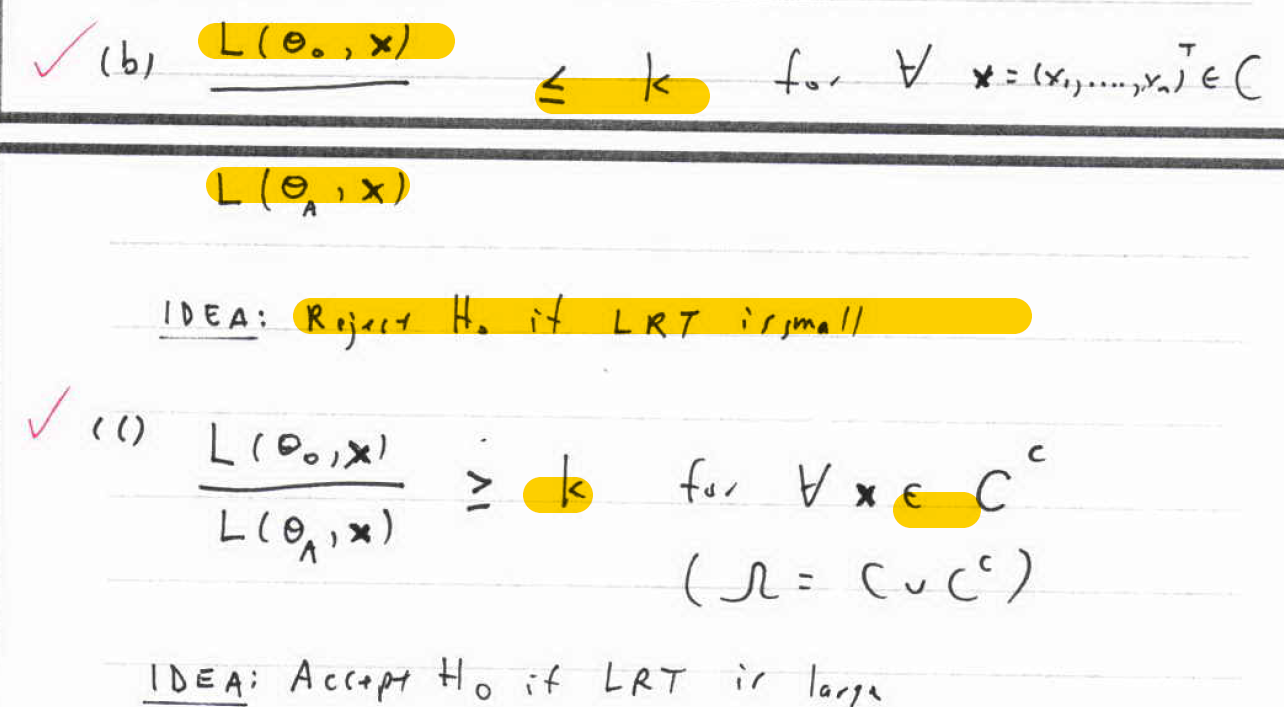 ✓ (b) L(θ₀, x) ≤ k for ∀ x = (x₁,....,xₙ)ᵀ ∈ C
L(θ_A, x)
IDEA: Reject H₀ if LRT is small
✓ (c) L(θ₀, x) / L(θ_A, x) ≥ k for ∀ x ∈ Cᶜ
(Ω = C ∪ Cᶜ)
IDEA: Accept H₀ if LRT is large